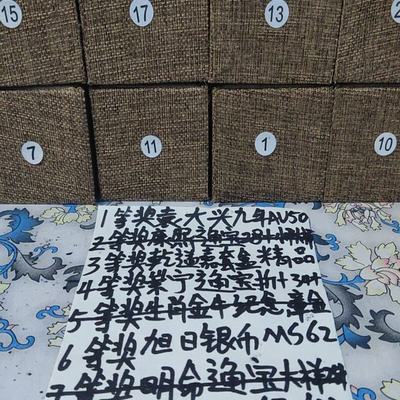 15 17 13 2
7 11 1 10
1等奖袁大头九年AU50
2等奖康熙通宝
3等奖乾通素套色精品
4等奖崇宁通宝折十
5等奖生肖金牛纪念章
6等奖旭日银币MS62
7等奖明命通宝大样